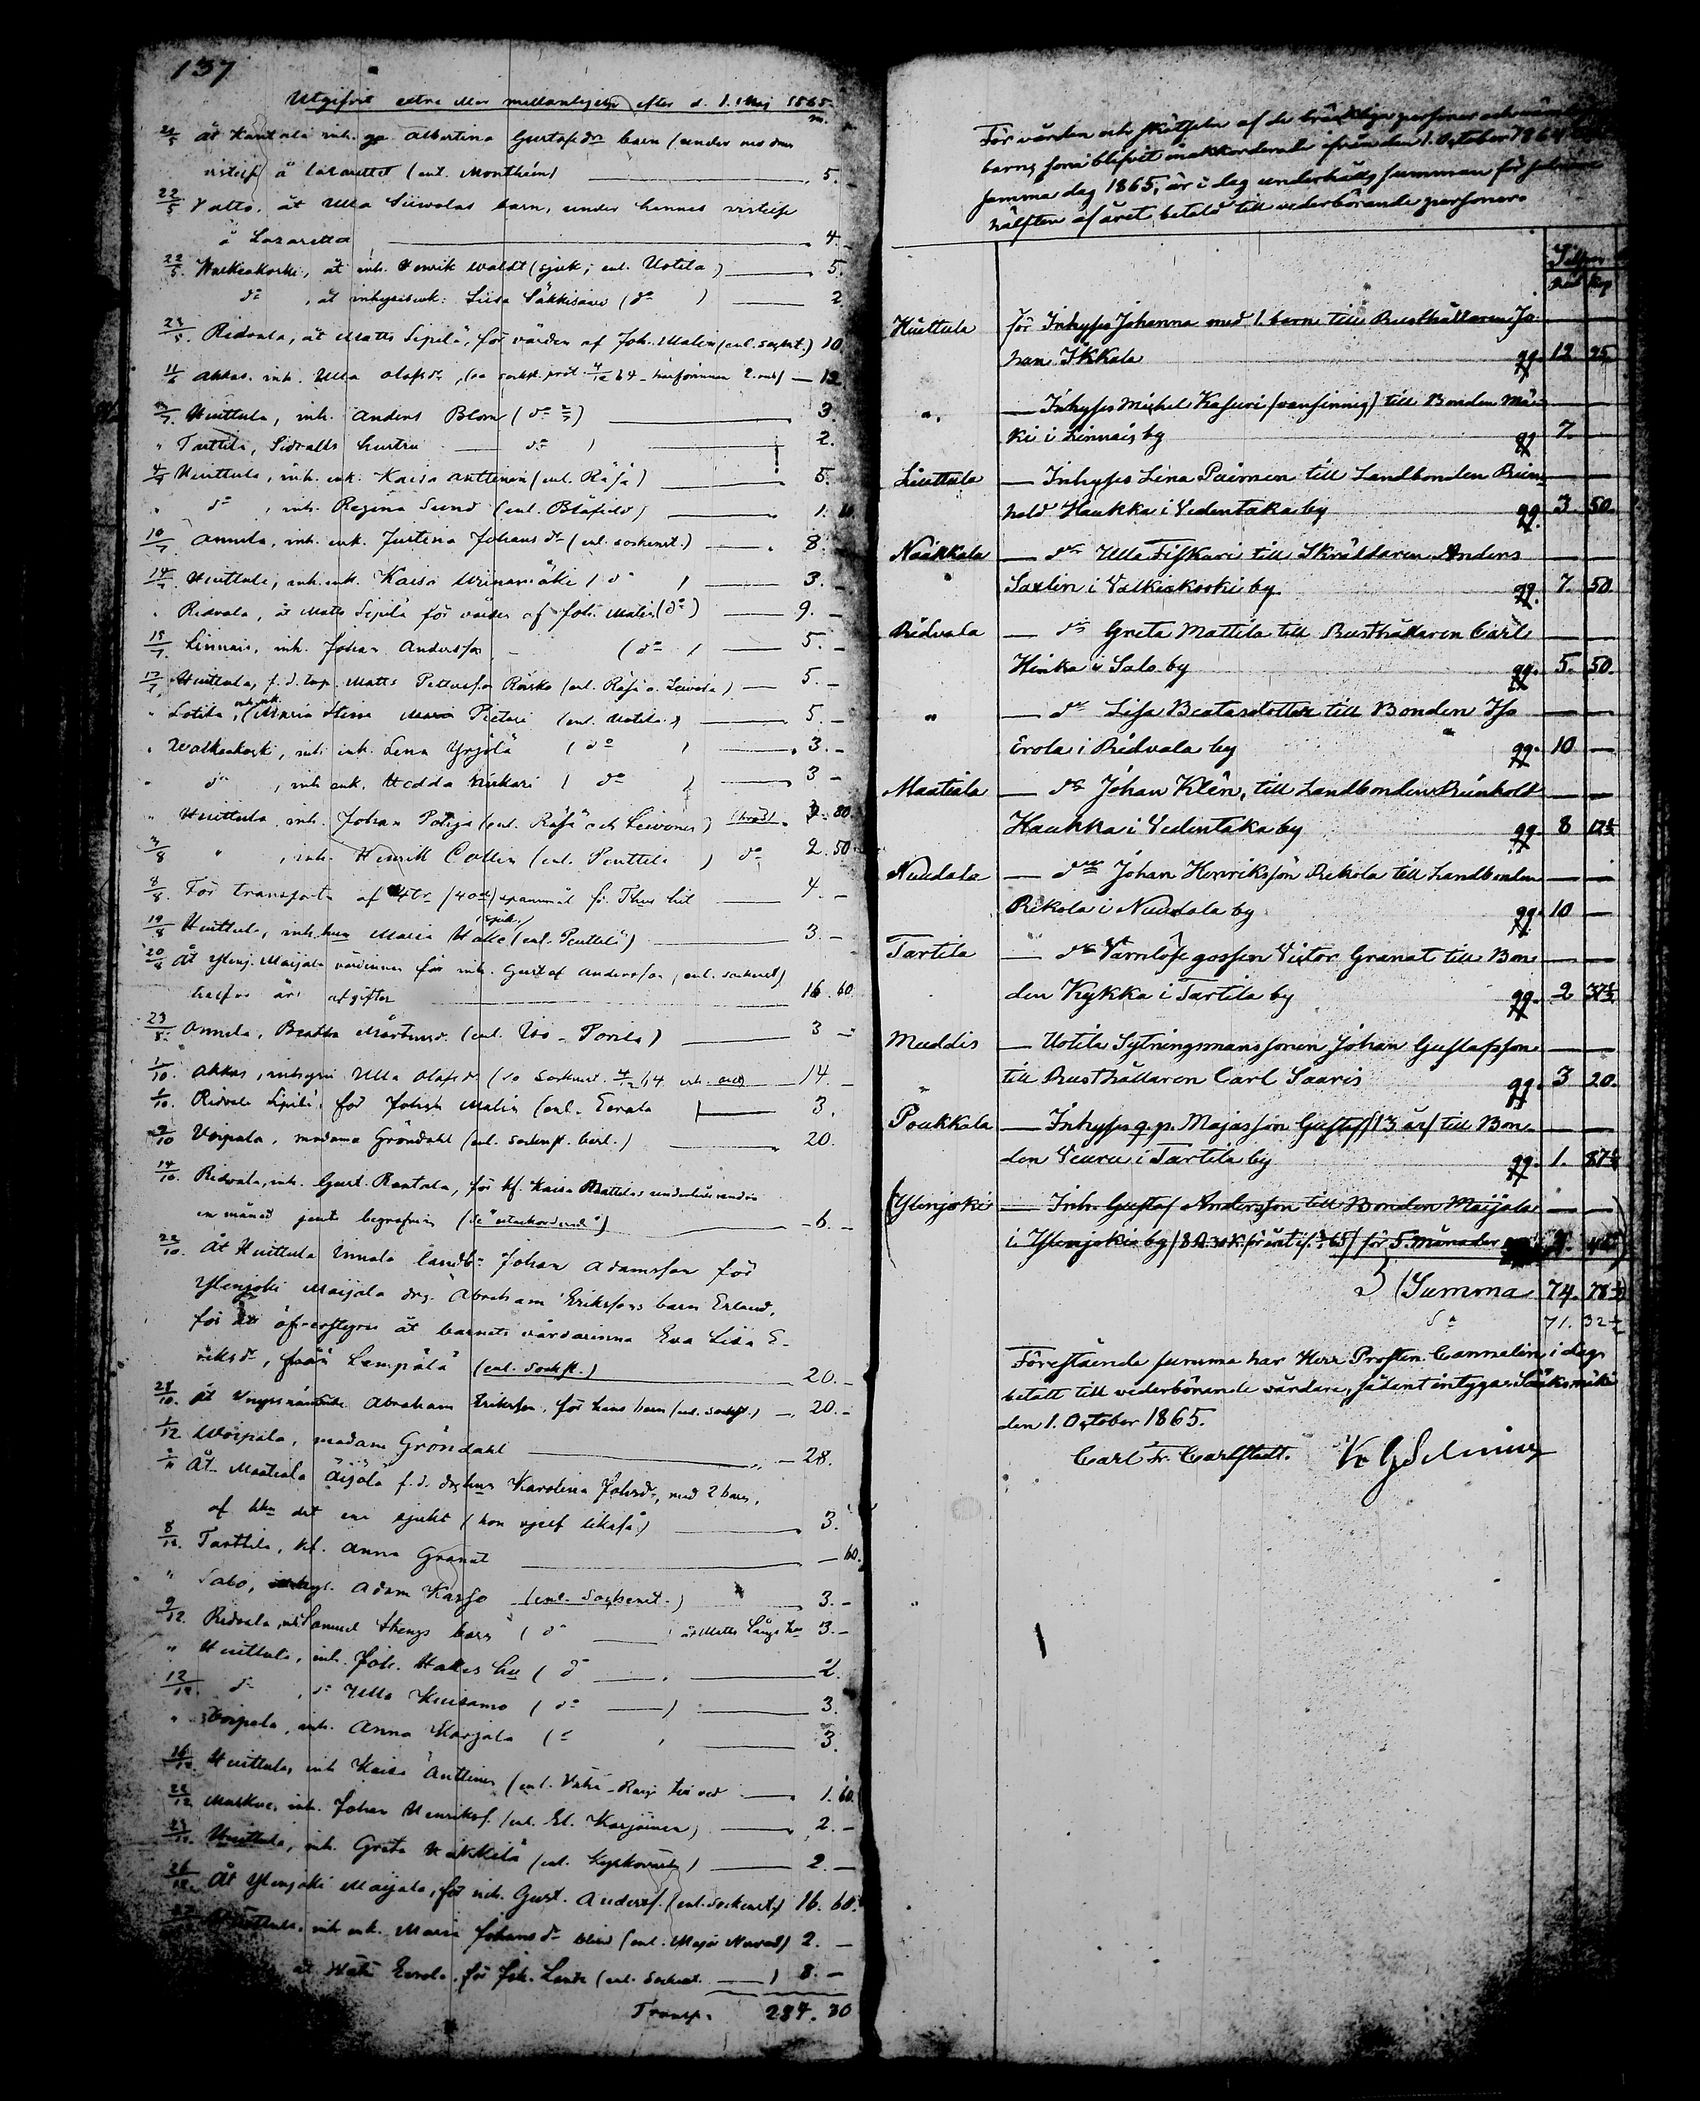 137
Utgifvet extra eller mellantiden efter d. 1. Maj 1865.
m.
21/5 åt Kantola inh. Albertina Gustafsdr barn (under mo
vistelse å lazarettet (enl. Montheim) 5.
22/5 Vatto, åt Ulla Siivolas barn, under hennes vistelse
å Lazarettet 4.
22/5 Walkiakoski, åt inh. Henrik Waldt (sjuk; enl. Uotila) 5.
do, åt inhysesenk. Liisa Säkkisaari (do) 2
23/5 Ridvala, åt Matts Sipilä, för vården af Joh. Malin (enl. sockst.) 10
11/6 Akkas, inh. Ulla Olofsdr, 12
Huittula, inh. Anders Blom (do) 3.
" Tarttila, Sidvalls hustru do 2.
4/7 Huittula, inh. enk. Kaisa Anttinen (enl. Räfsä) 5.
" do, inh. Regina Sund (enl. Blåfield) 1.
10/7 Annila, inh. enk. Justina Johansdr (enl. sockenst.) 8.
14/7 Huittula, inh. enk. Kaisa Urinamäki (do) 3.
" Ridvala, åt Matts Sipilä för vården af Joh. Malin (do) 9.
15/7 Linnais, inh. Johan Andersson (do) 5.
17/7 Huittula, f.d. torp. Matts Pettersson Rouko (enl. Räfsä o. Leivonen) 5.
" Lotila, Maria Pietari (enl. Uotila) 5.
" Walkiakoski, inh. enk. Lena Yrjölä (do) 3.
" do, inh. enk. Hedda Kiskari (do) 3
" Huittula, inh. Johan Pohja (enl. Räfsä och Leivonen) 80.
7/8 ", inh. Henrik Collin (enl. Penttilä) do 2.50.
8/8 För transport af spannmål fr. Thus hit 4.
19/8 Huittula, inh. Maria Hakk (enl. Penttilä) 3.
20/8 Åt Ylenj. Maijala värdinnan för inh. Gustaf Andersson (enl. sockenst)
halfva års afgifter 16.60
23/8 Annila, Beatta Mårtensdr. (enl. Uo - Ponila) 3
1/10 Akkas, inhyses Ulla Olofsdr 14.
1/10 Ridvala Sipilä, för Johan Malin (enl. Eerola) 3.
9/10 Voipala, madame Gröndahl (enl. Sockenst. besl.) 20.
14/10 Ridvala, inh. Gust. Rantala, för kf. Kaisa Mattilas underhåll under
en månad jemte begrafning 6.
22/10 Åt Huittula Unnala landb. Johan Adamsson för
Ylenjoki Maijala drg. Abraham Erikssons barn Erland,
för åt barnets vårdarinna Eva Lisa E-
riksdr, från Lempälä (enl. sockst.) 20.
28/10 Åt Abraham Eriksson, för hans barn (enl. sockst.) 20.
1/12 Woipala, madam Gröndahl 28.
Åt Maatiala Äijälä f.d. drgens Karolina Johsdr, med 2 barn,
af hka det ena sjukt (hon sjelf likaså) 3.
8/12 Tarttila, kf. Anna Granat 60.
" Salo, inhys. Adam Karso (enl. Sockenst.) 3.
9/12 Ridvala, inh. Samuel Stengs barn (do åt Matts Långs hu 3.
" Huittula, inh. Joh. Hakks hu (do 2.
12/12 do, do Ulla Kuusamo (do) 3.
" Voipala, inh. Anna Harjala (do 3.
16/12 Huittula, inh. Kaisa Anttinen 1.60.
22/12 Mälkue, inh. Johan Henriksf. (enl. El. Karjainen) 2.
23/12 Huittula, inh. Greta Heikkilä (enl. Kyrkovärd.) 2.
26/12 Åt Ylenjoki Maijala, för inh. Gust. Andersf. (enl. sockenst) 16.60.
Huittula, inh. enk. Maria Johansdr blind (enl. Major Nevad) 2.
åt Eerola, för Joh. Lantz (enl. Sockenst. ) 8.
Transp. 284.30
För vården och skötseln af de bräcklige personer och
barns som blifvit inackorderade ifrån den 1. October 1864
samma dag 1865, är i dag underhålls summan för
hälften af året betald till vederbörande personer.
Silfver
Rub Kop
Huittula för Inhyses Johanna med 1. barn till Rusthållaren Jo-
han Ikkala qq. 12 25
" — Inhyses Michel Kasuri (vansinnig) till Bonden Mä-
ki i Linnais by qq 7.
Liuttula — Inhyses Lina Paimen till Landbonden Rein-
hold Haukka i Vedentaka by qq. 3. 50.
Naakkala — do Ulla Fiskari till Skräddaren Anders
Saxlin i Valkiakoski by qq. 7. 50.
Ridvala — do Greta Mattila till Rusthållaren Carl
Hinka i Salo by qq. 5. 50.
" — do Lisa Beatasdotter till Bonden Is
Erola i Ridvala by qq. 10 —
Maatiala — do Johan Klén, till Landbonden Reinhold
Haukka i Vedentaka by qq. 8 12½
Nuudala — do Johan Henriksson Rekola till Landbonden
Rekola i Nuudala by qq. 10 —
Tartila — do Värnlöse gossen Victor Granat till Bon-
den Kykka i Tartila by qq. 2 37½
Muddis — Uotila Sytningsmans sonen Johan Gustafsson
" till Rusthållaren Carl Saaris qq. 3 20.
Poukkala — Inhyses q.p. Majas son Gustaf (13 år) till Bon-
den Veuru i Tartila by qq. 1. 87½
(Ylenjoki — Inh. Gustaf Andersson till Bonden Maijala
i Ylenjoki by för 5. månader
(Summa 74. 78½)
Sa 71. 32½
Förestående summa har Herr Prosten Cannelin i dag
betalt till vederbörande vårdare, sådant intygas Sääksmäki
den 1. October 1865.
Carl Fr. Carlstedt.